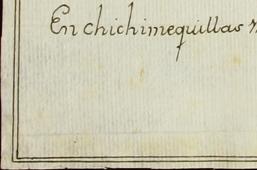 En chichimequillas